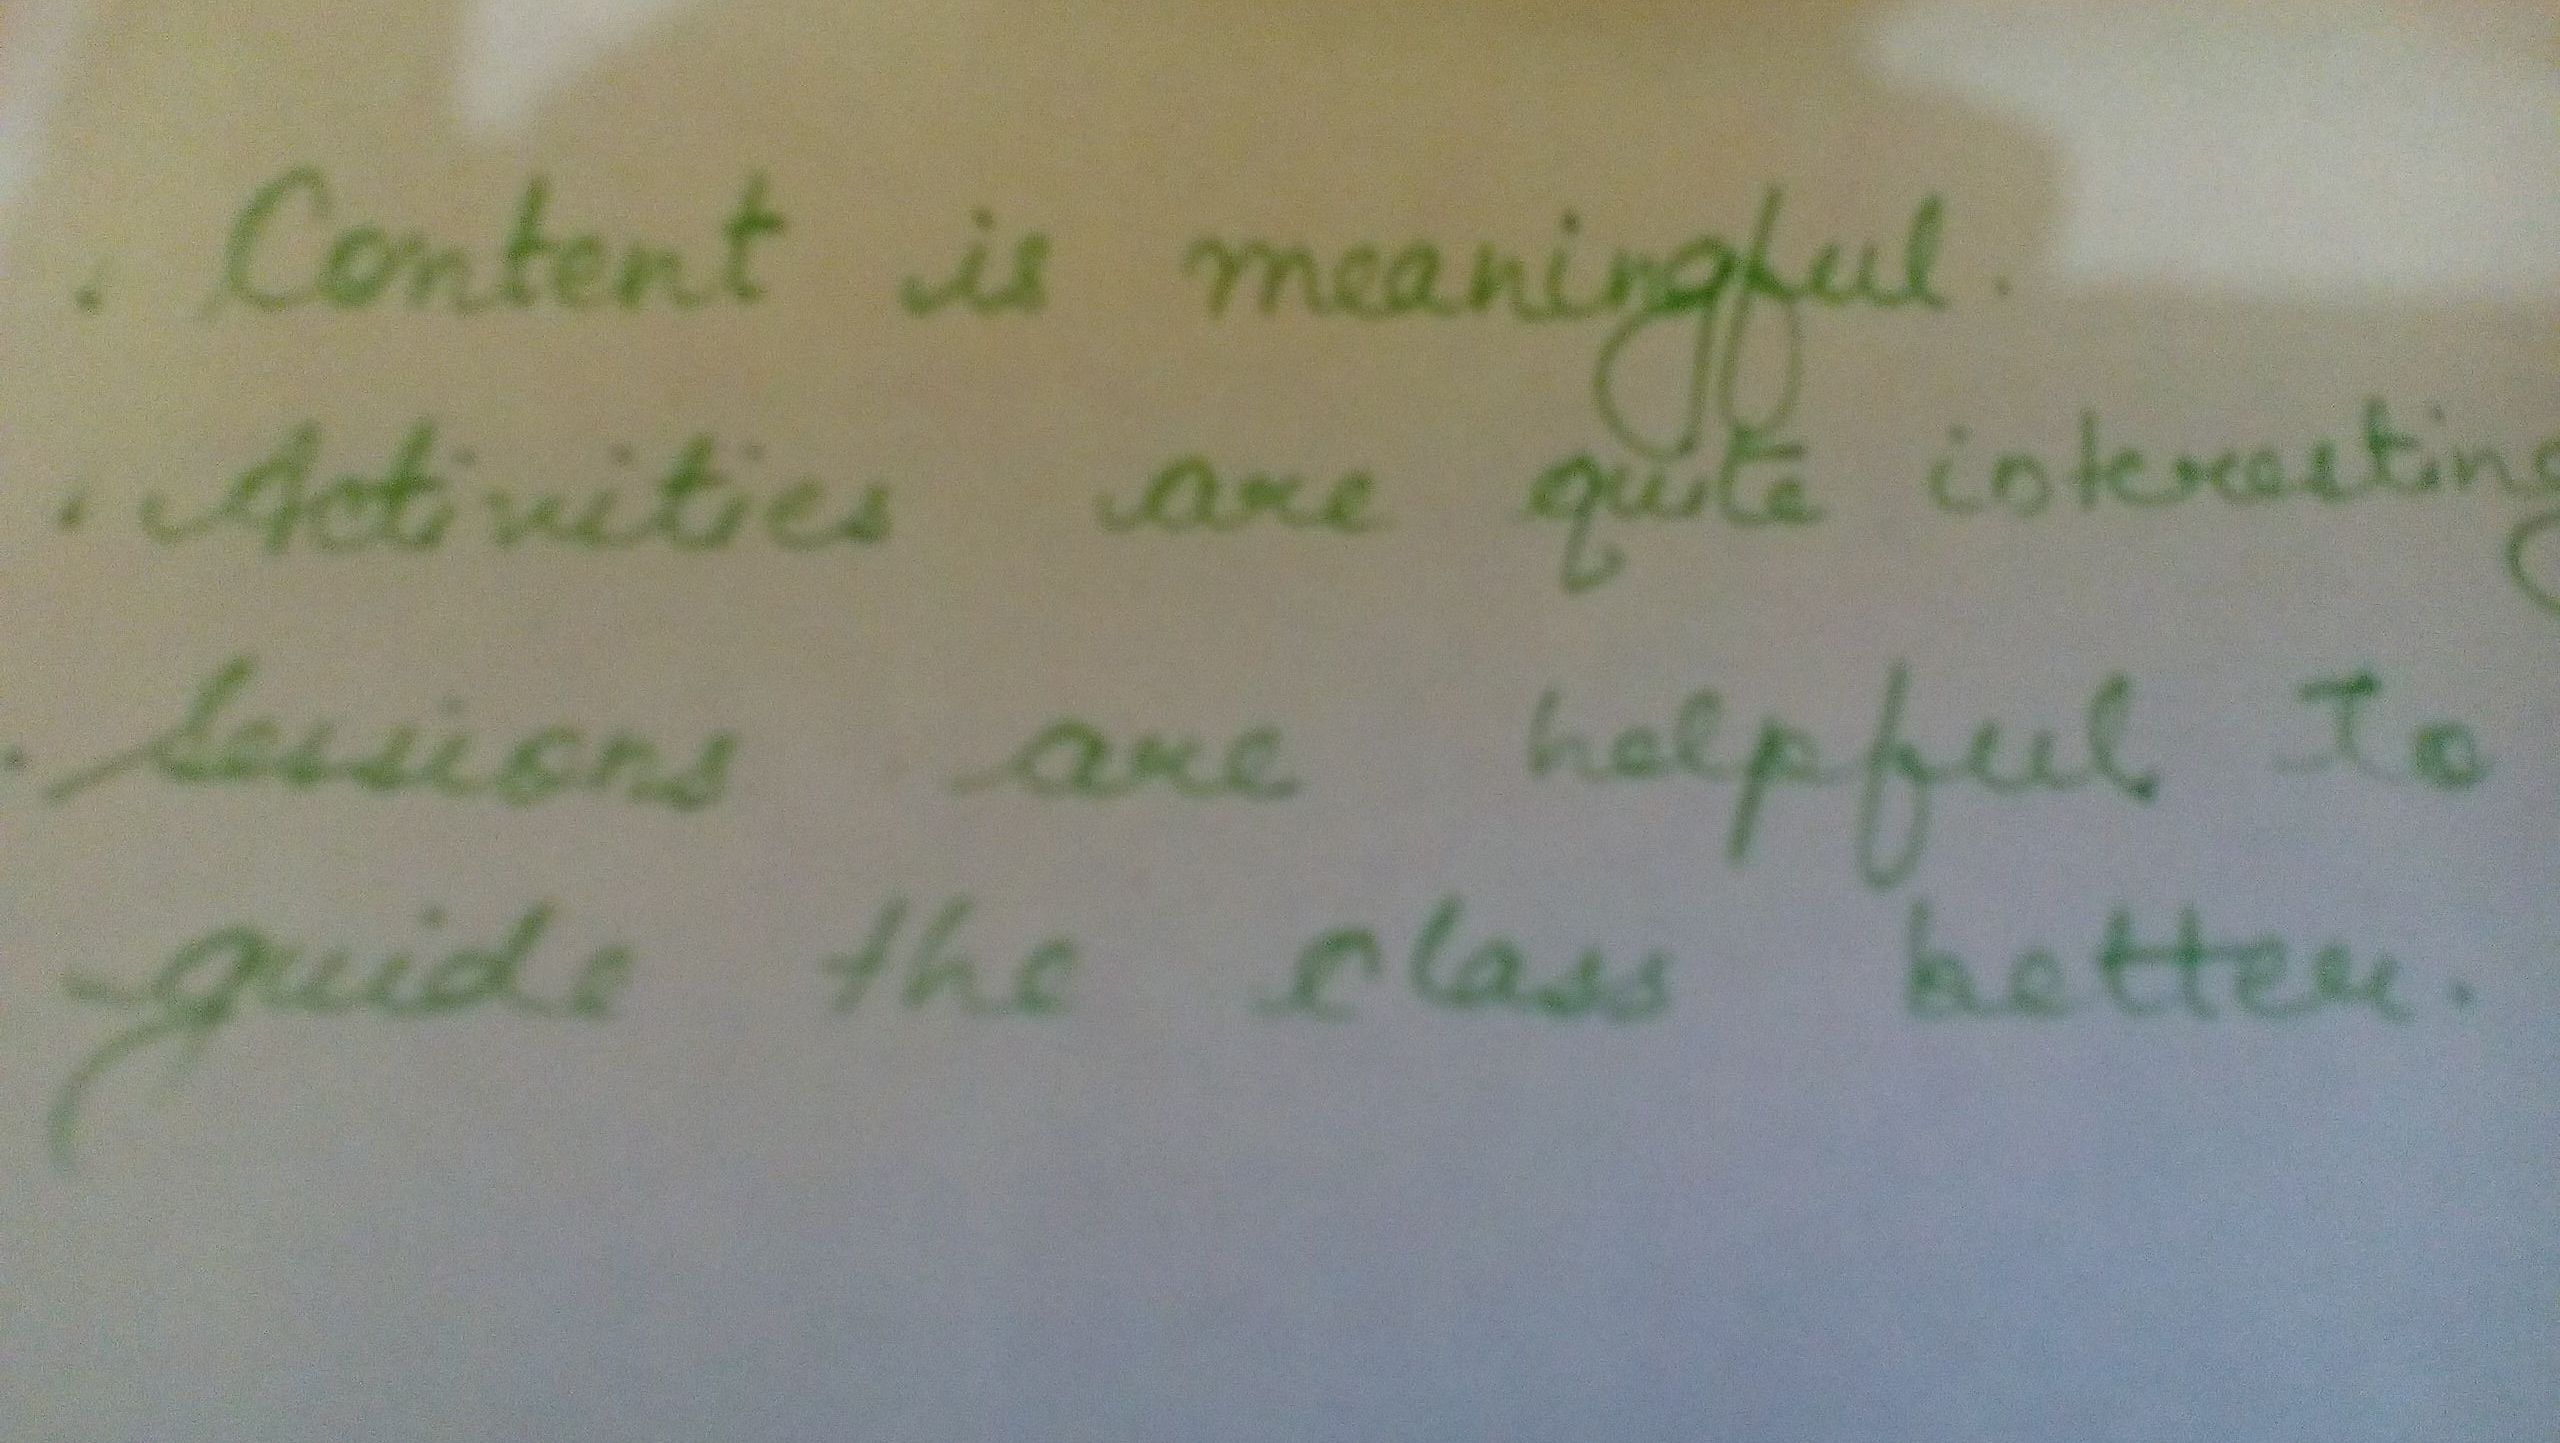 . Content is meaningful.
. Activities are quite interesting
. Sessions are helpful to
guide the class better.